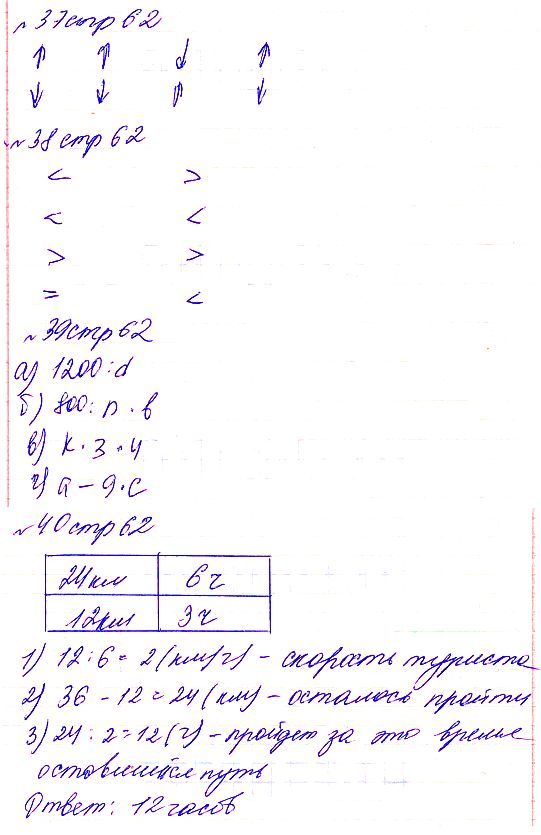 №37стр62
↑ ↑ ↓ ↑
↓ ↓ ↑ ↓
№38стр62
< >
< <
> >
= <
№39стр62
а) 1200:d
б) 800:n·в
в) k·3·4
г) a-9·c
№40стр62
24км 6ч
12км 3ч
1) 12:6=2(км/ч)-скорость туриста
2) 36-12=24(км)-осталось пройти
3) 24:2=12(ч)-пройдет за это время
оставшийся путь
Ответ: 12часов